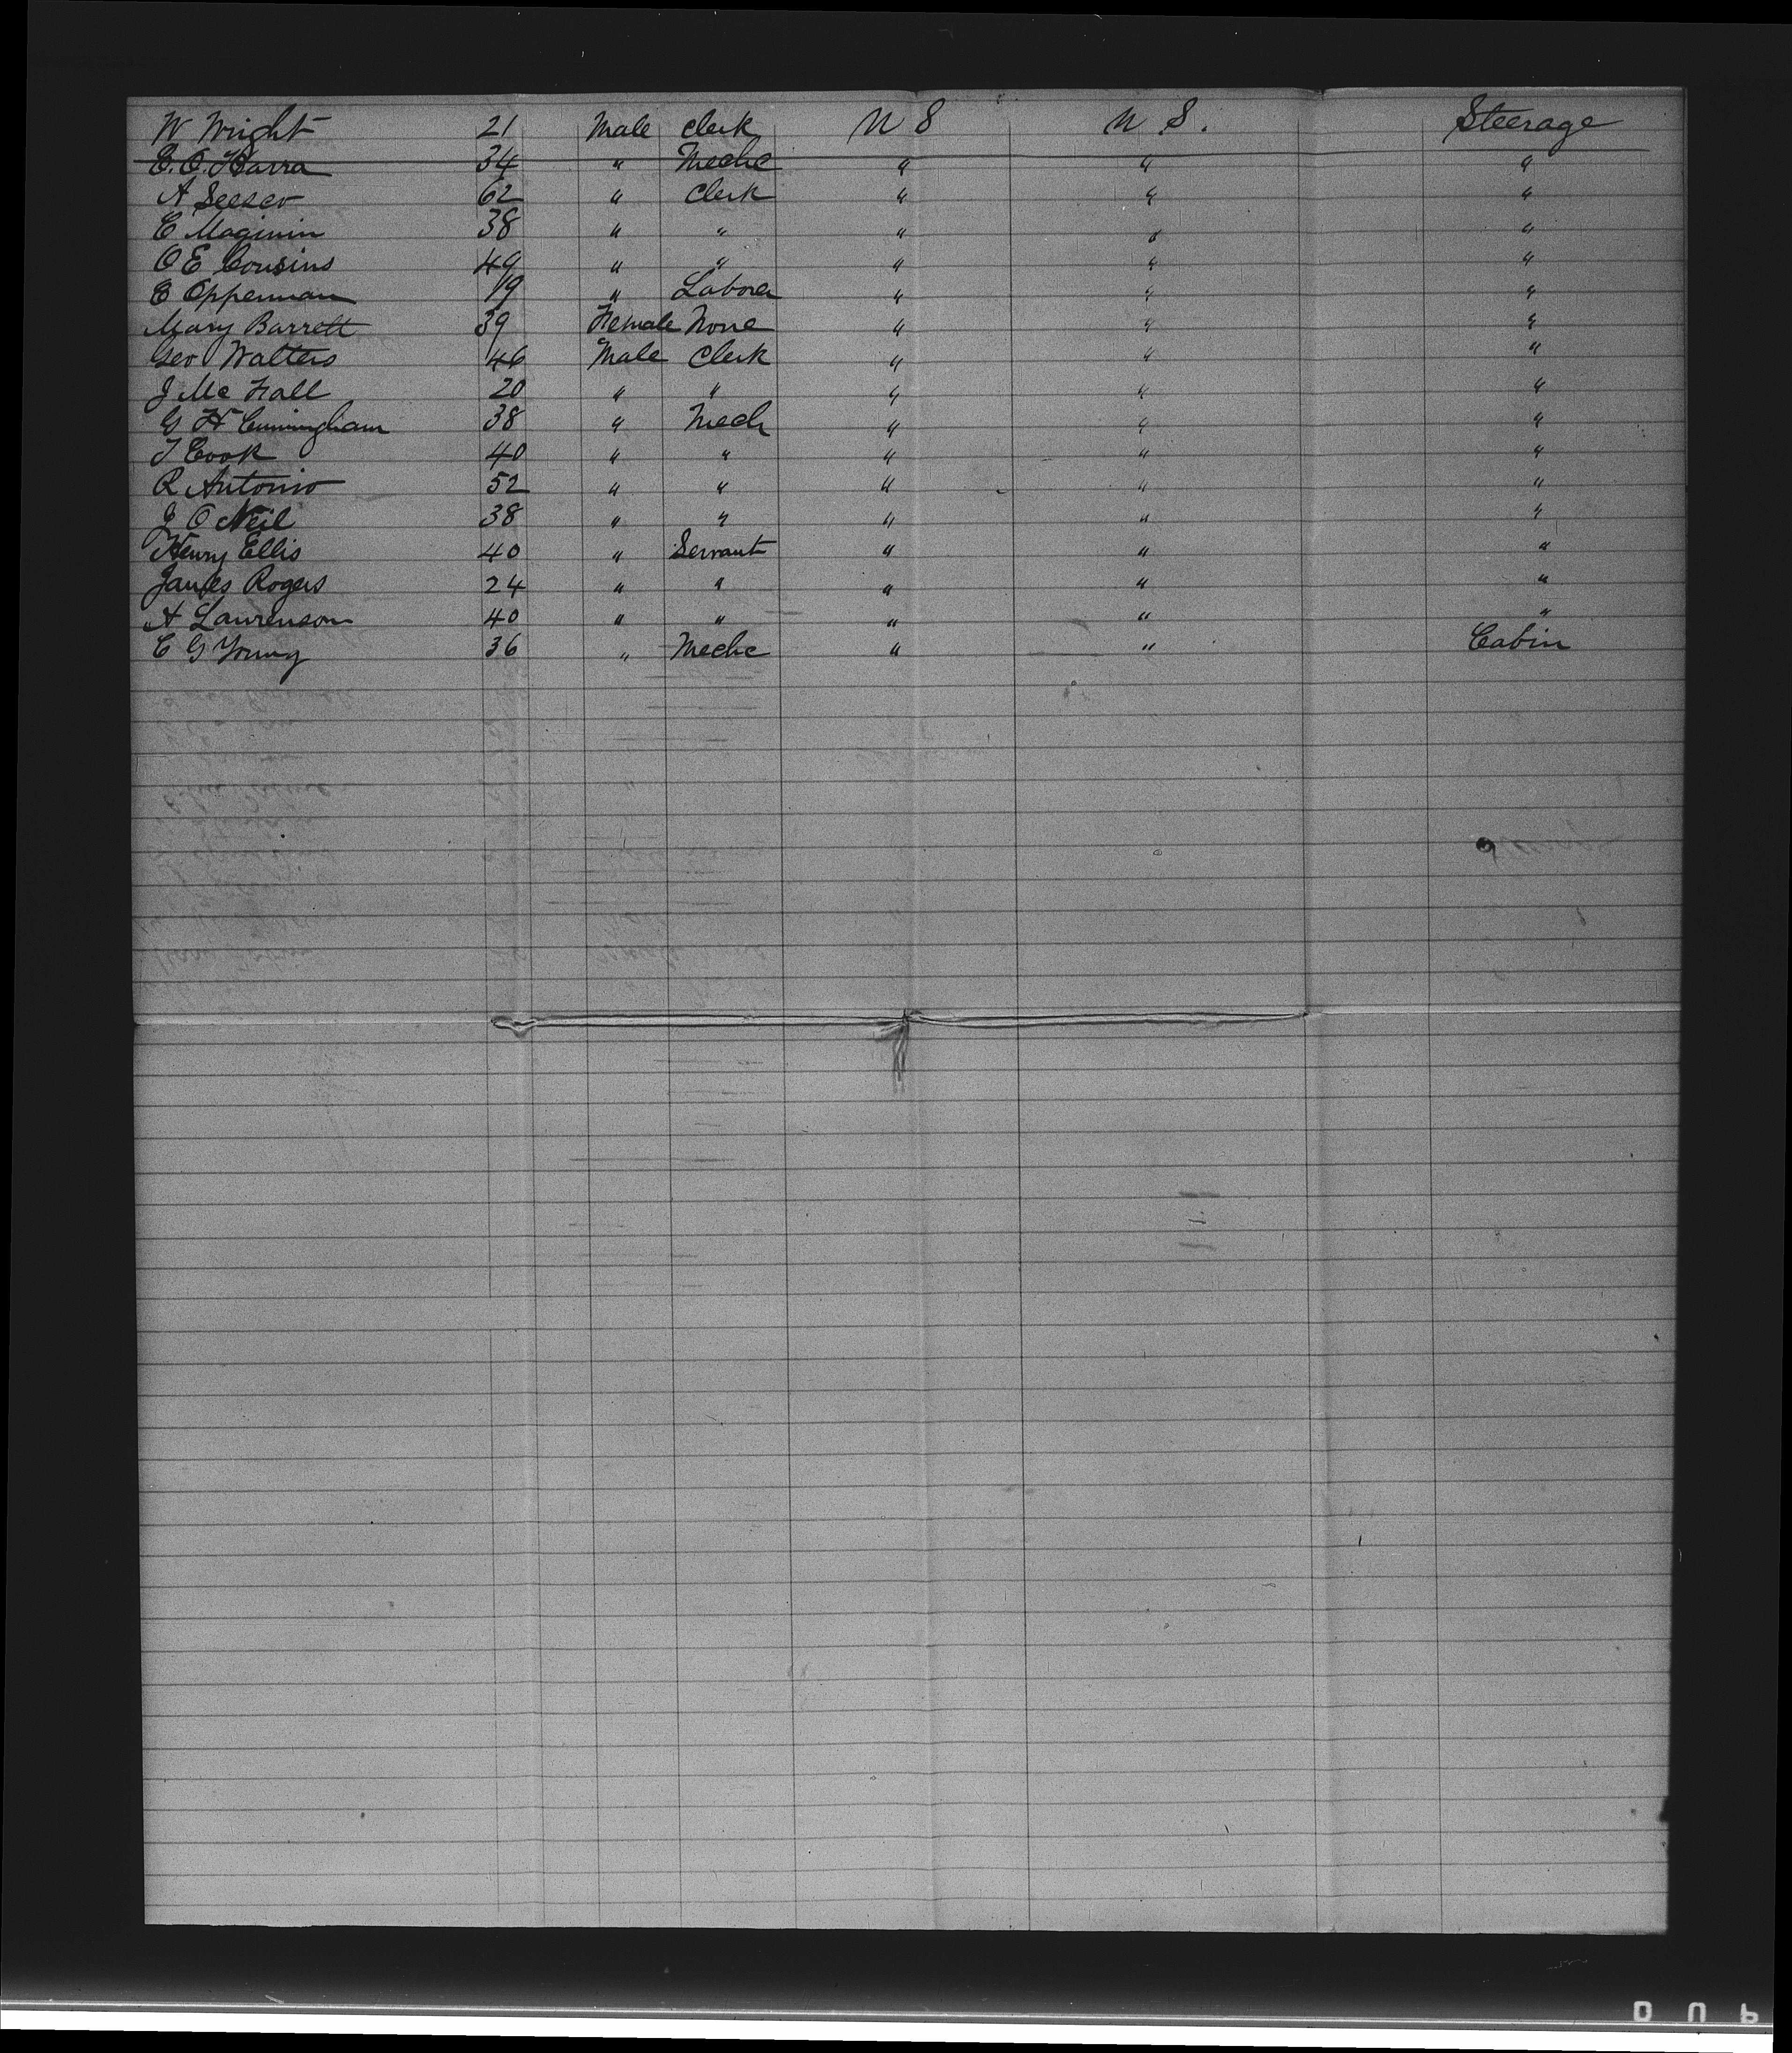 W Wright 21 Male Clerk U S U. S. Steerage
E. O. Harra 34 " Mechc " " "
A 62 " Clerk " " "
C Maginin 38 " " " " "
O E Cousins 49 " " " " "
E Opperman 19 " Laborer " " "
Mary Barrett 39 Female None " " "
Geo Walters 46 Male Clerk " " "
J Mc Fall 20 " " " " "
G H Cunningham 38 " Mech " " "
T Cook 40 " " " " "
R Antonio 52 " " " " "
J O Neil 38 " " " " "
Henry Ellis 40 " Servant " " "
James Rogers 24 " " " " "
A Laurenson 40 " " " " "
C G Young 36 " Mechc " " Cabin